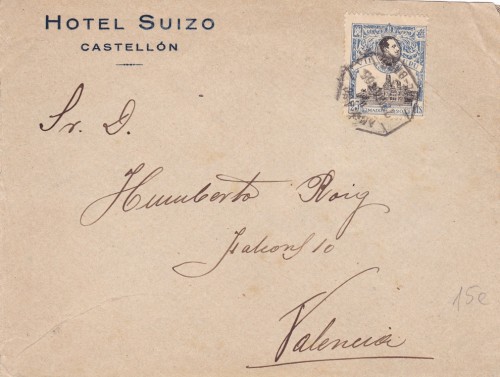 HOTEL SUIZO
CASTELLÓN
Sr. D.
Humberto Roig
10
Valencia
15€